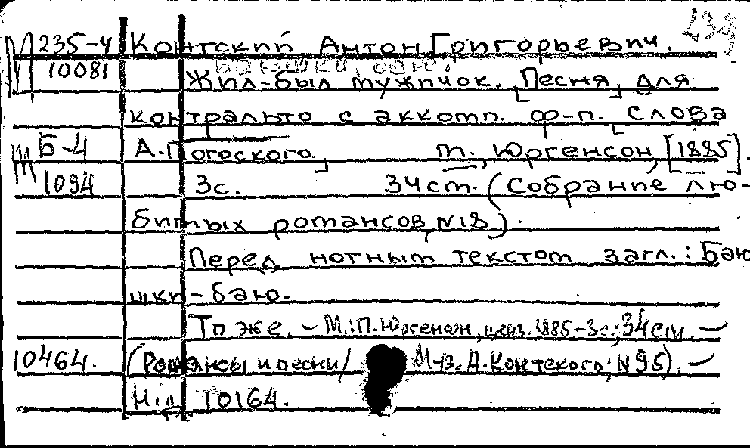 М 235-4 Контский Антон Григорьевич.
10081 Жил-был мужичок. [Песня] для
контральто с аккомп. ф-п. [Слова
Б-4 А. Погоского]. М., Юргенсон, [1885].
1094 3с. 34 см. (Собрание лю-
бимых романсов, №18).
Перед нотным текстом загл.: Баю
шки-баю.
То же. - М.: П. Юргенсон, ценз. 1885-3с.; 34 см. —
10464. (Романсы и песни / М-з. А. Контского; №95). —
Н.д. 10164.